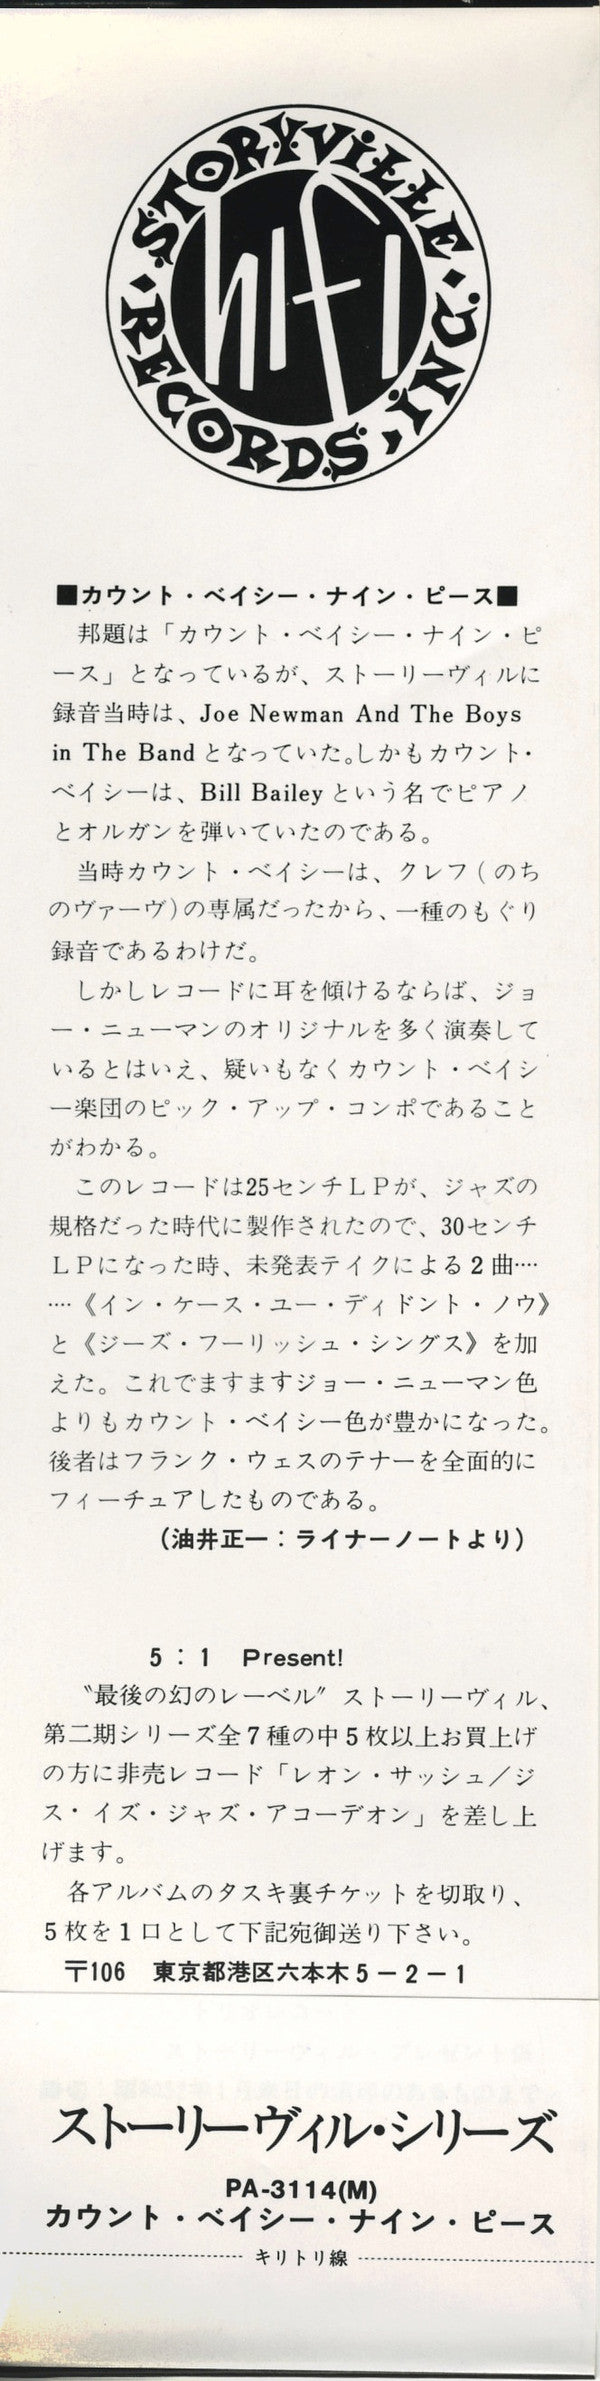 STORYVILLE RECORDS, INC.
hifi
■カウント・ベイシー・ナイン・ピース■
邦題は「カウント・ベイシー・ナイン・ピ
ース」となっているが、ストーリーヴィルに
録音当時は、Joe Newman And The Boys
in The Band となっていた。しかもカウント・
ベイシーは、Bill Bailey という名でピアノ
とオルガンを弾いていたのである。
当時カウント・ベイシーは、クレフ(のち
のヴァーヴ)の専属だったから、一種のもぐり
録音であるわけだ。
しかしレコードに耳を傾けるならば、ジョ
ー・ニューマンのオリジナルを多く演奏して
いるとはいえ、疑いもなくカウント・ベイシ
ー楽団のピック・アップ・コンボであること
がわかる。
このレコードは25センチLPが、ジャズの
規格だった時代に製作されたので、30センチ
LPになった時、未発表テイクによる2曲……
……《イン・ケース・ユー・ディドント・ノウ》
と《ジーズ・フーリッシュ・シングス》を加
えた。これでますますジョー・ニューマン色
よりもカウント・ベイシー色が豊かになった。
後者はフランク・ウェスのテナーを全面的に
フィーチュアしたものである。
(油井正一：ライナーノートより)
5：1 Present!
〝最後の幻のレーベル〟ストーリーヴィル、
第二期シリーズ全7種の中5枚以上お買上げ
の方に非売レコード「レオン・サッシュ／ジ
ス・イズ・ジャズ・アコーデオン」を差し上
げます。
各アルバムのタスキ裏チケットを切取り、
5枚を1口として下記宛御送り下さい。
〒106 東京都港区六本木5－2－1
ストーリーヴィル・シリーズ
PA-3114(M)
カウント・ベイシー・ナイン・ピース
キリトリ線